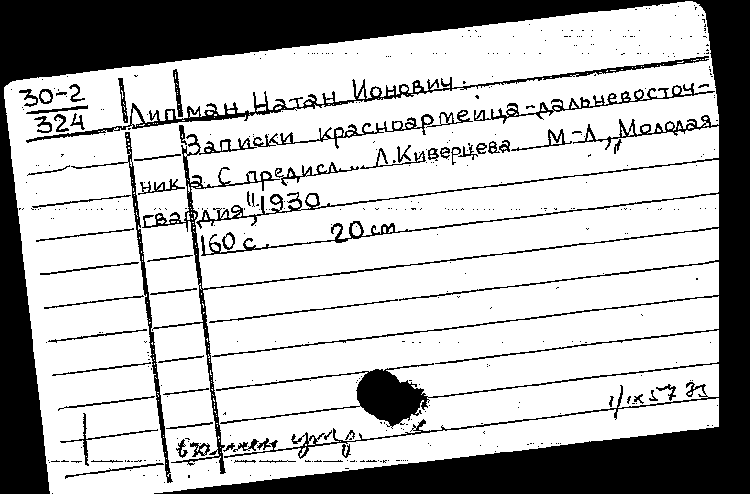 30-2
324
Липман, Натан Ионович.
Записки красноармейца-дальневосточ-
ника. С предисл... Л. Киверцева. М-Л., „Молодая
гвардия", 1930.
160 с. 20 см
взамен утр.